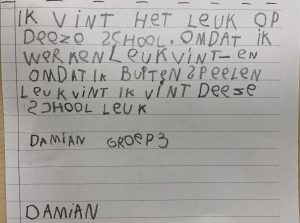 IK VINT HET LEUK OP
DEEZE SCHOOL. OMDAT IK
WERKEN LEUK VINT EN
OMDAT IK BUITEN SPEELEN
LEUK VINT IK VINT DEESE
SCHOOL LEUK
DAMIAN GROEP 3
DAMIAN